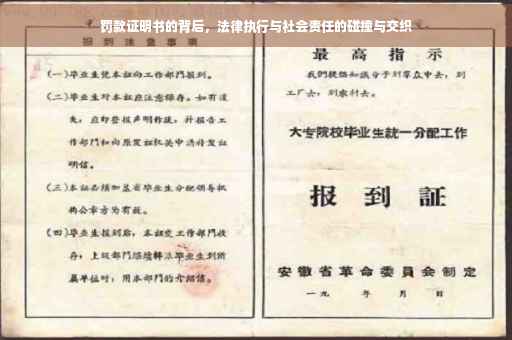 罚款证明书的背后，法律执行与社会责任的碰撞与交织
报到注意事项
(一)毕业生凭本证向工作部门报到。
(二)毕业生对本证应注意保存。如有遗
失，应即登报声明作废，并报告工
作部门和向原发证机关申请补发证
明信。
(三)本证必须加盖省毕业生分配领导机
构公章方为有效。
(四)毕业生报到后，本证交工作部门收
存；上级部门继续转派毕业生到所
属单位时，用本部门的介绍信。
最高指示
我们提倡知识分子到群众中去，到
工厂去，到农村去。
大专院校毕业生统一分配工作
报到証
安徽省革命委員会制定
一九 年 月 日